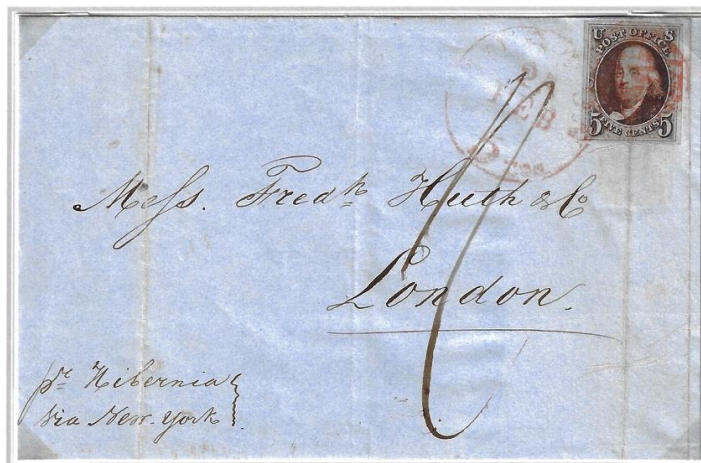 U S
POST OFFICE
5 FIVE CENTS 5
FEB
Mess. Fredk Huth & Co
London.
pr Hibernia
via New-York